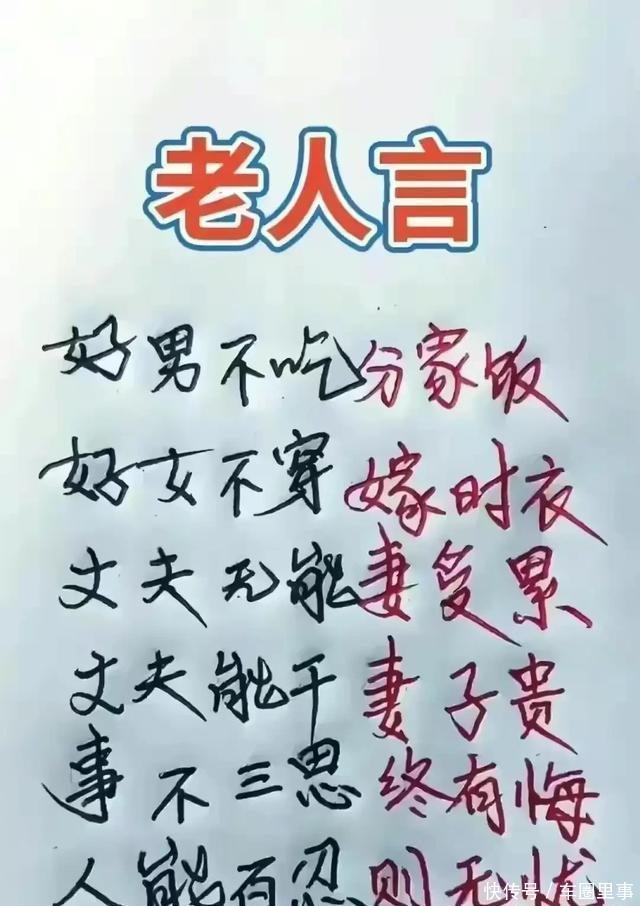 老人言
好男不吃分家饭
好女不穿嫁时衣
丈夫无能妻受累
丈夫能干妻子贵
事不三思终有悔
人能百忍则无忧
快传号／车圈里事